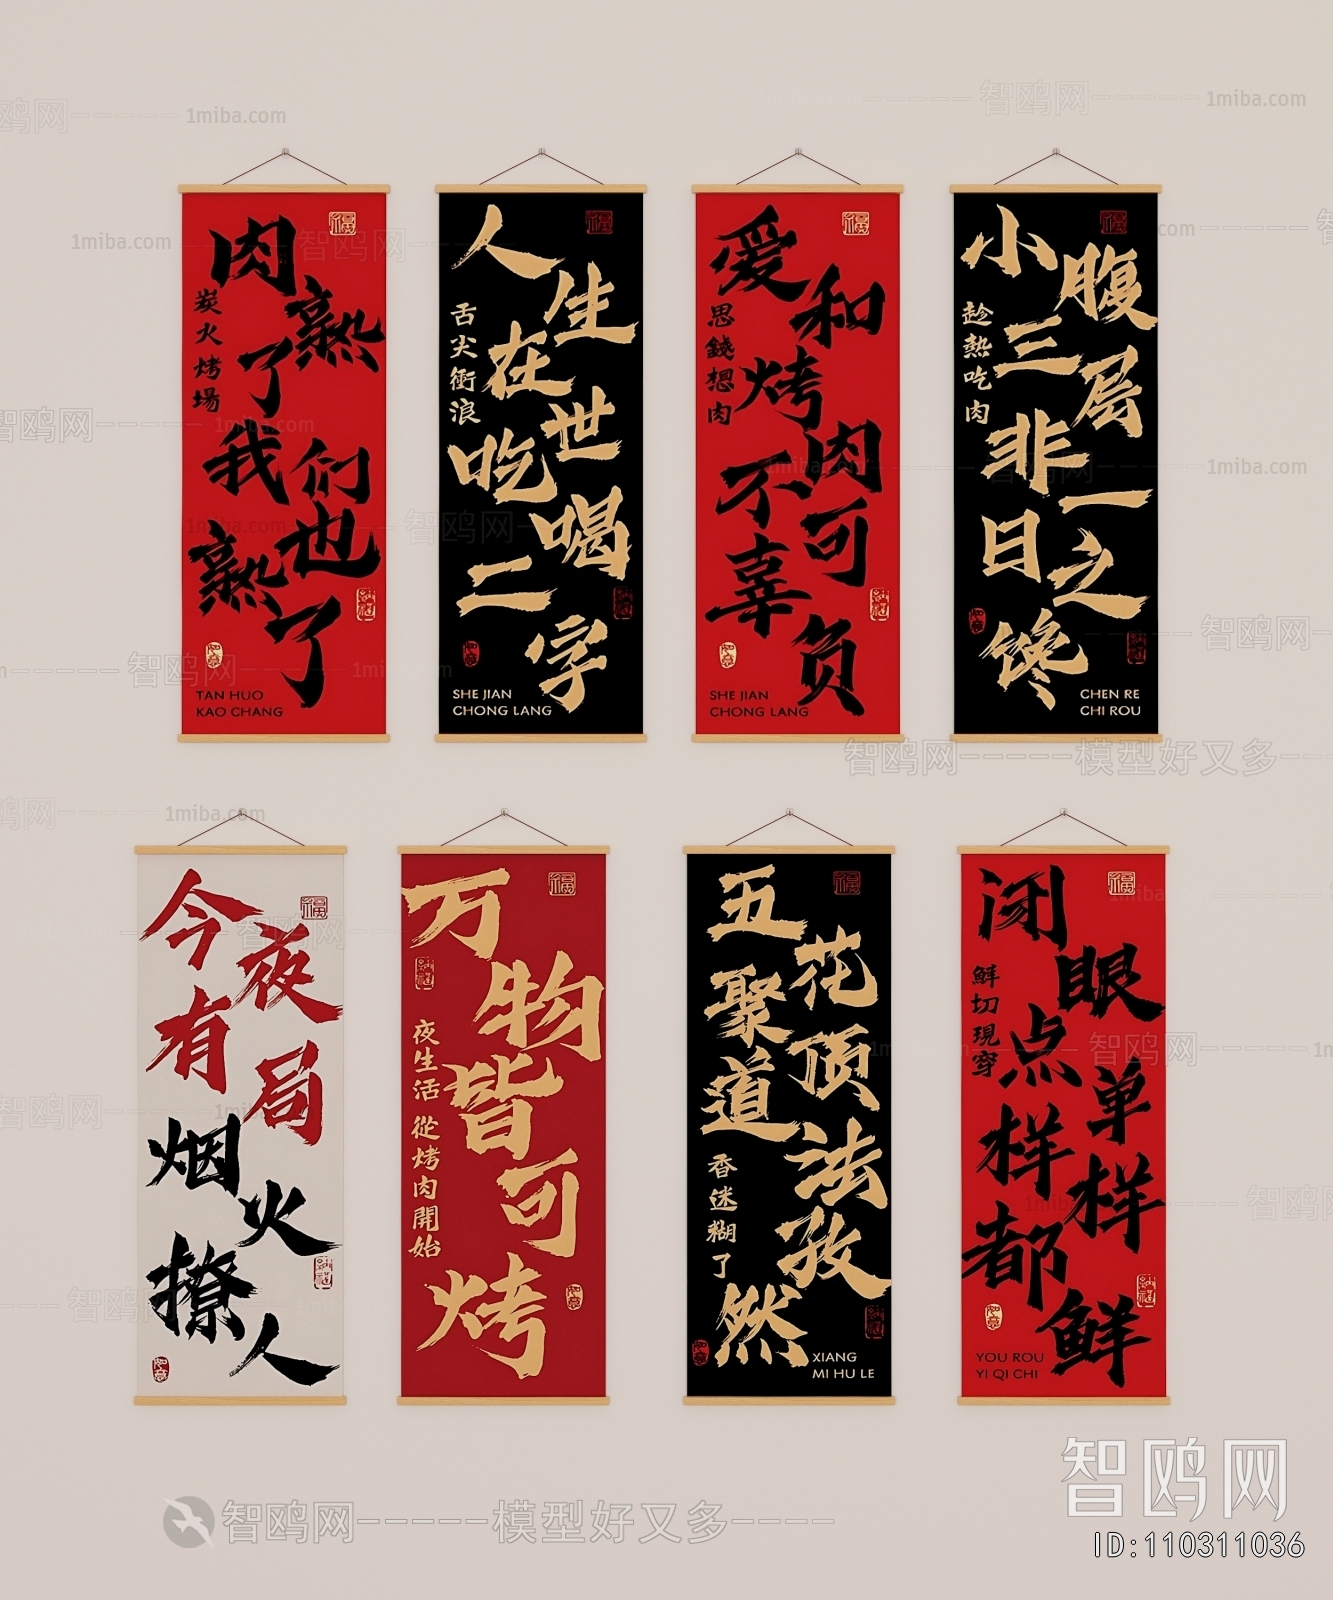 肉熟了我们也熟了
炭火烤場
福
如意
TAN HUO
KAO CHANG
人生在世吃喝二字
舌尖衝浪
福
如意
SHE JIAN
CHONG LANG
爱和烤肉可不辜负
思錢想肉
福
如意
SHE JIAN
CHONG LANG
小腹三层非一日之馋
趁熱吃肉
福
如意
CHEN RE
CHI ROU
今夜有局烟火撩人
福
如意
万物皆可烤
夜生活 從烤肉開始
福
如意
五花聚顶道法孜然
香迷糊了
福
如意
XIANG
MI HU LE
闭眼点单样样都鲜
鮮切現穿
福
如意
YOU ROU
YI QI CHI
智鸥网-----模型好又多----
智鸥网
ID:110311036
1miba.com